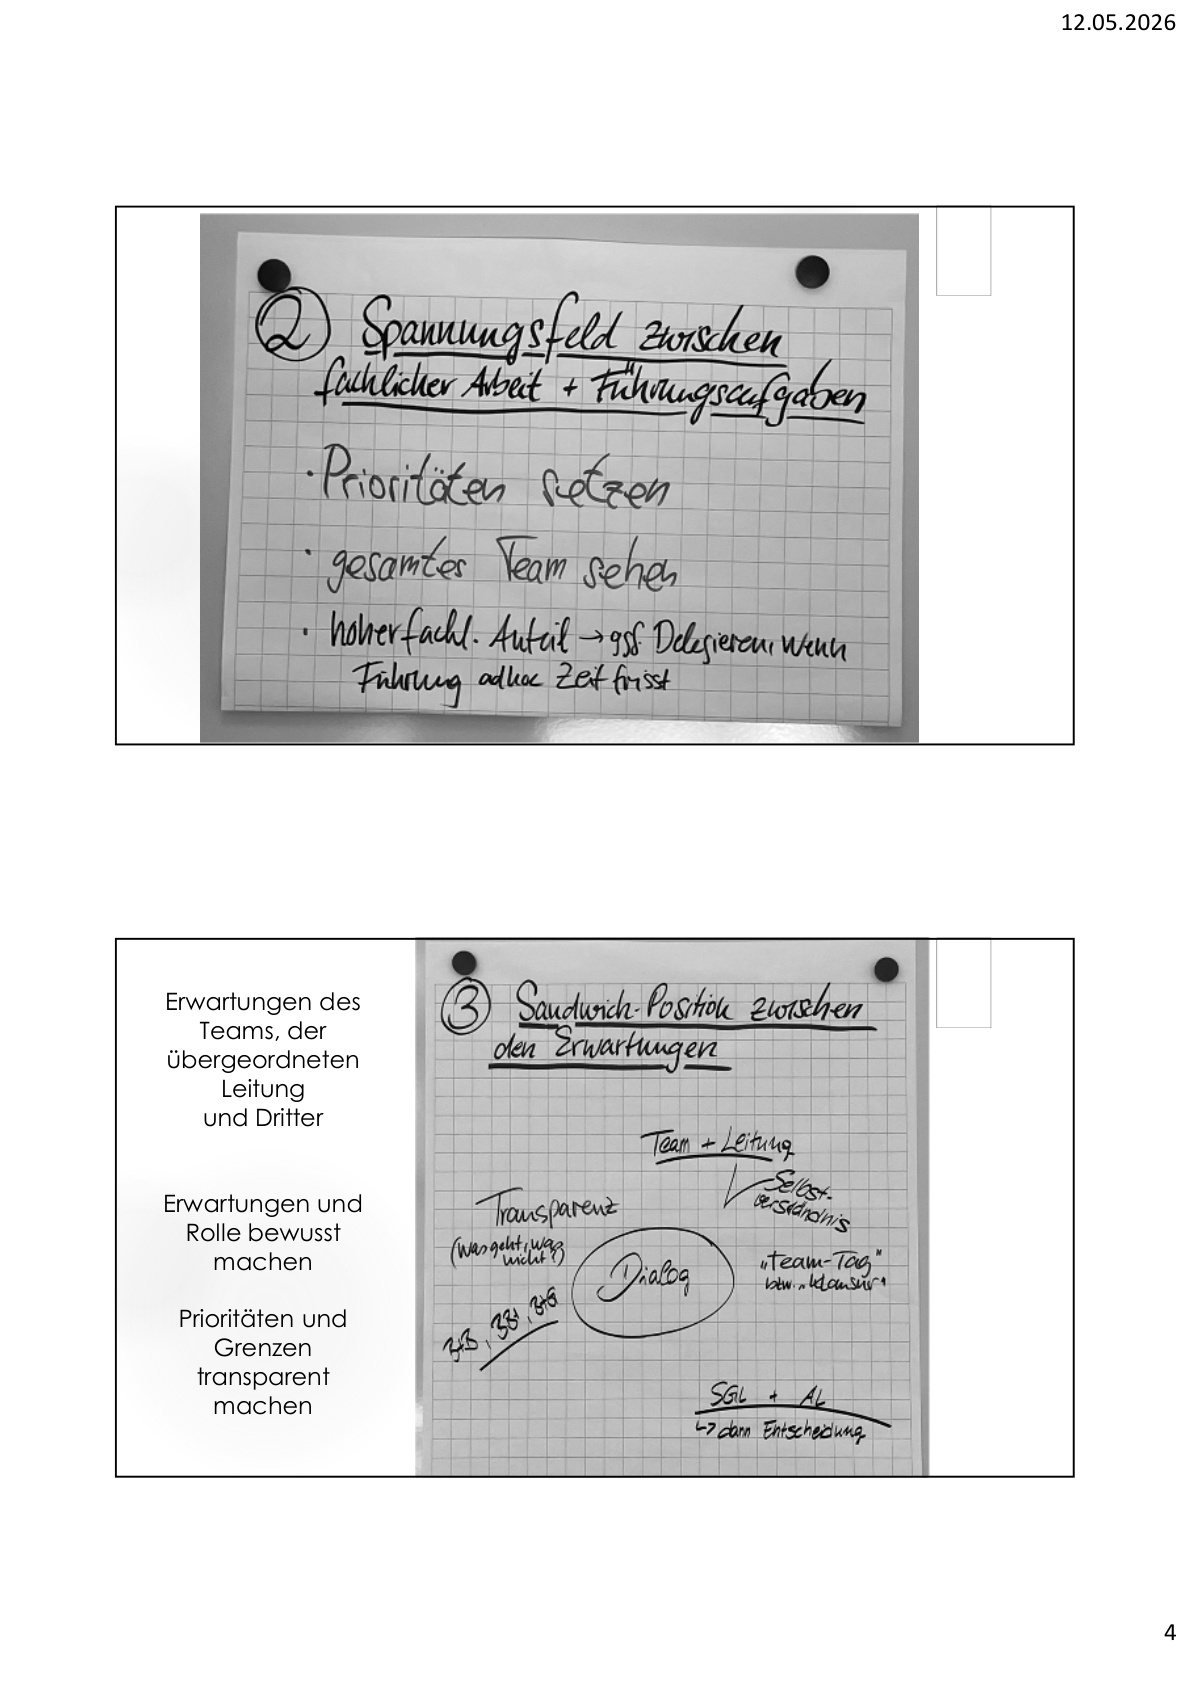 12.05.2026
2 Spannungsfeld zwischen
fachlicher Arbeit + Führungsaufgaben
· Prioritäten setzen
· gesamtes Team sehen
· hoher fachl. Anteil → ggf. Delegieren, wenn
Führung adhoc Zeit frisst
Erwartungen des
Teams, der
übergeordneten
Leitung
und Dritter
Erwartungen und
Rolle bewusst
machen
Prioritäten und
Grenzen
transparent
machen
3 Sandwich-Position zwischen
den Erwartungen
Team + Leitung
Selbst-
verständnis
Transparenz
(Was geht, was
nicht?)
Dialog
„Team-Tag"
bzw. „Klausur"
SGL + AL
↳ dann Entscheidung
4